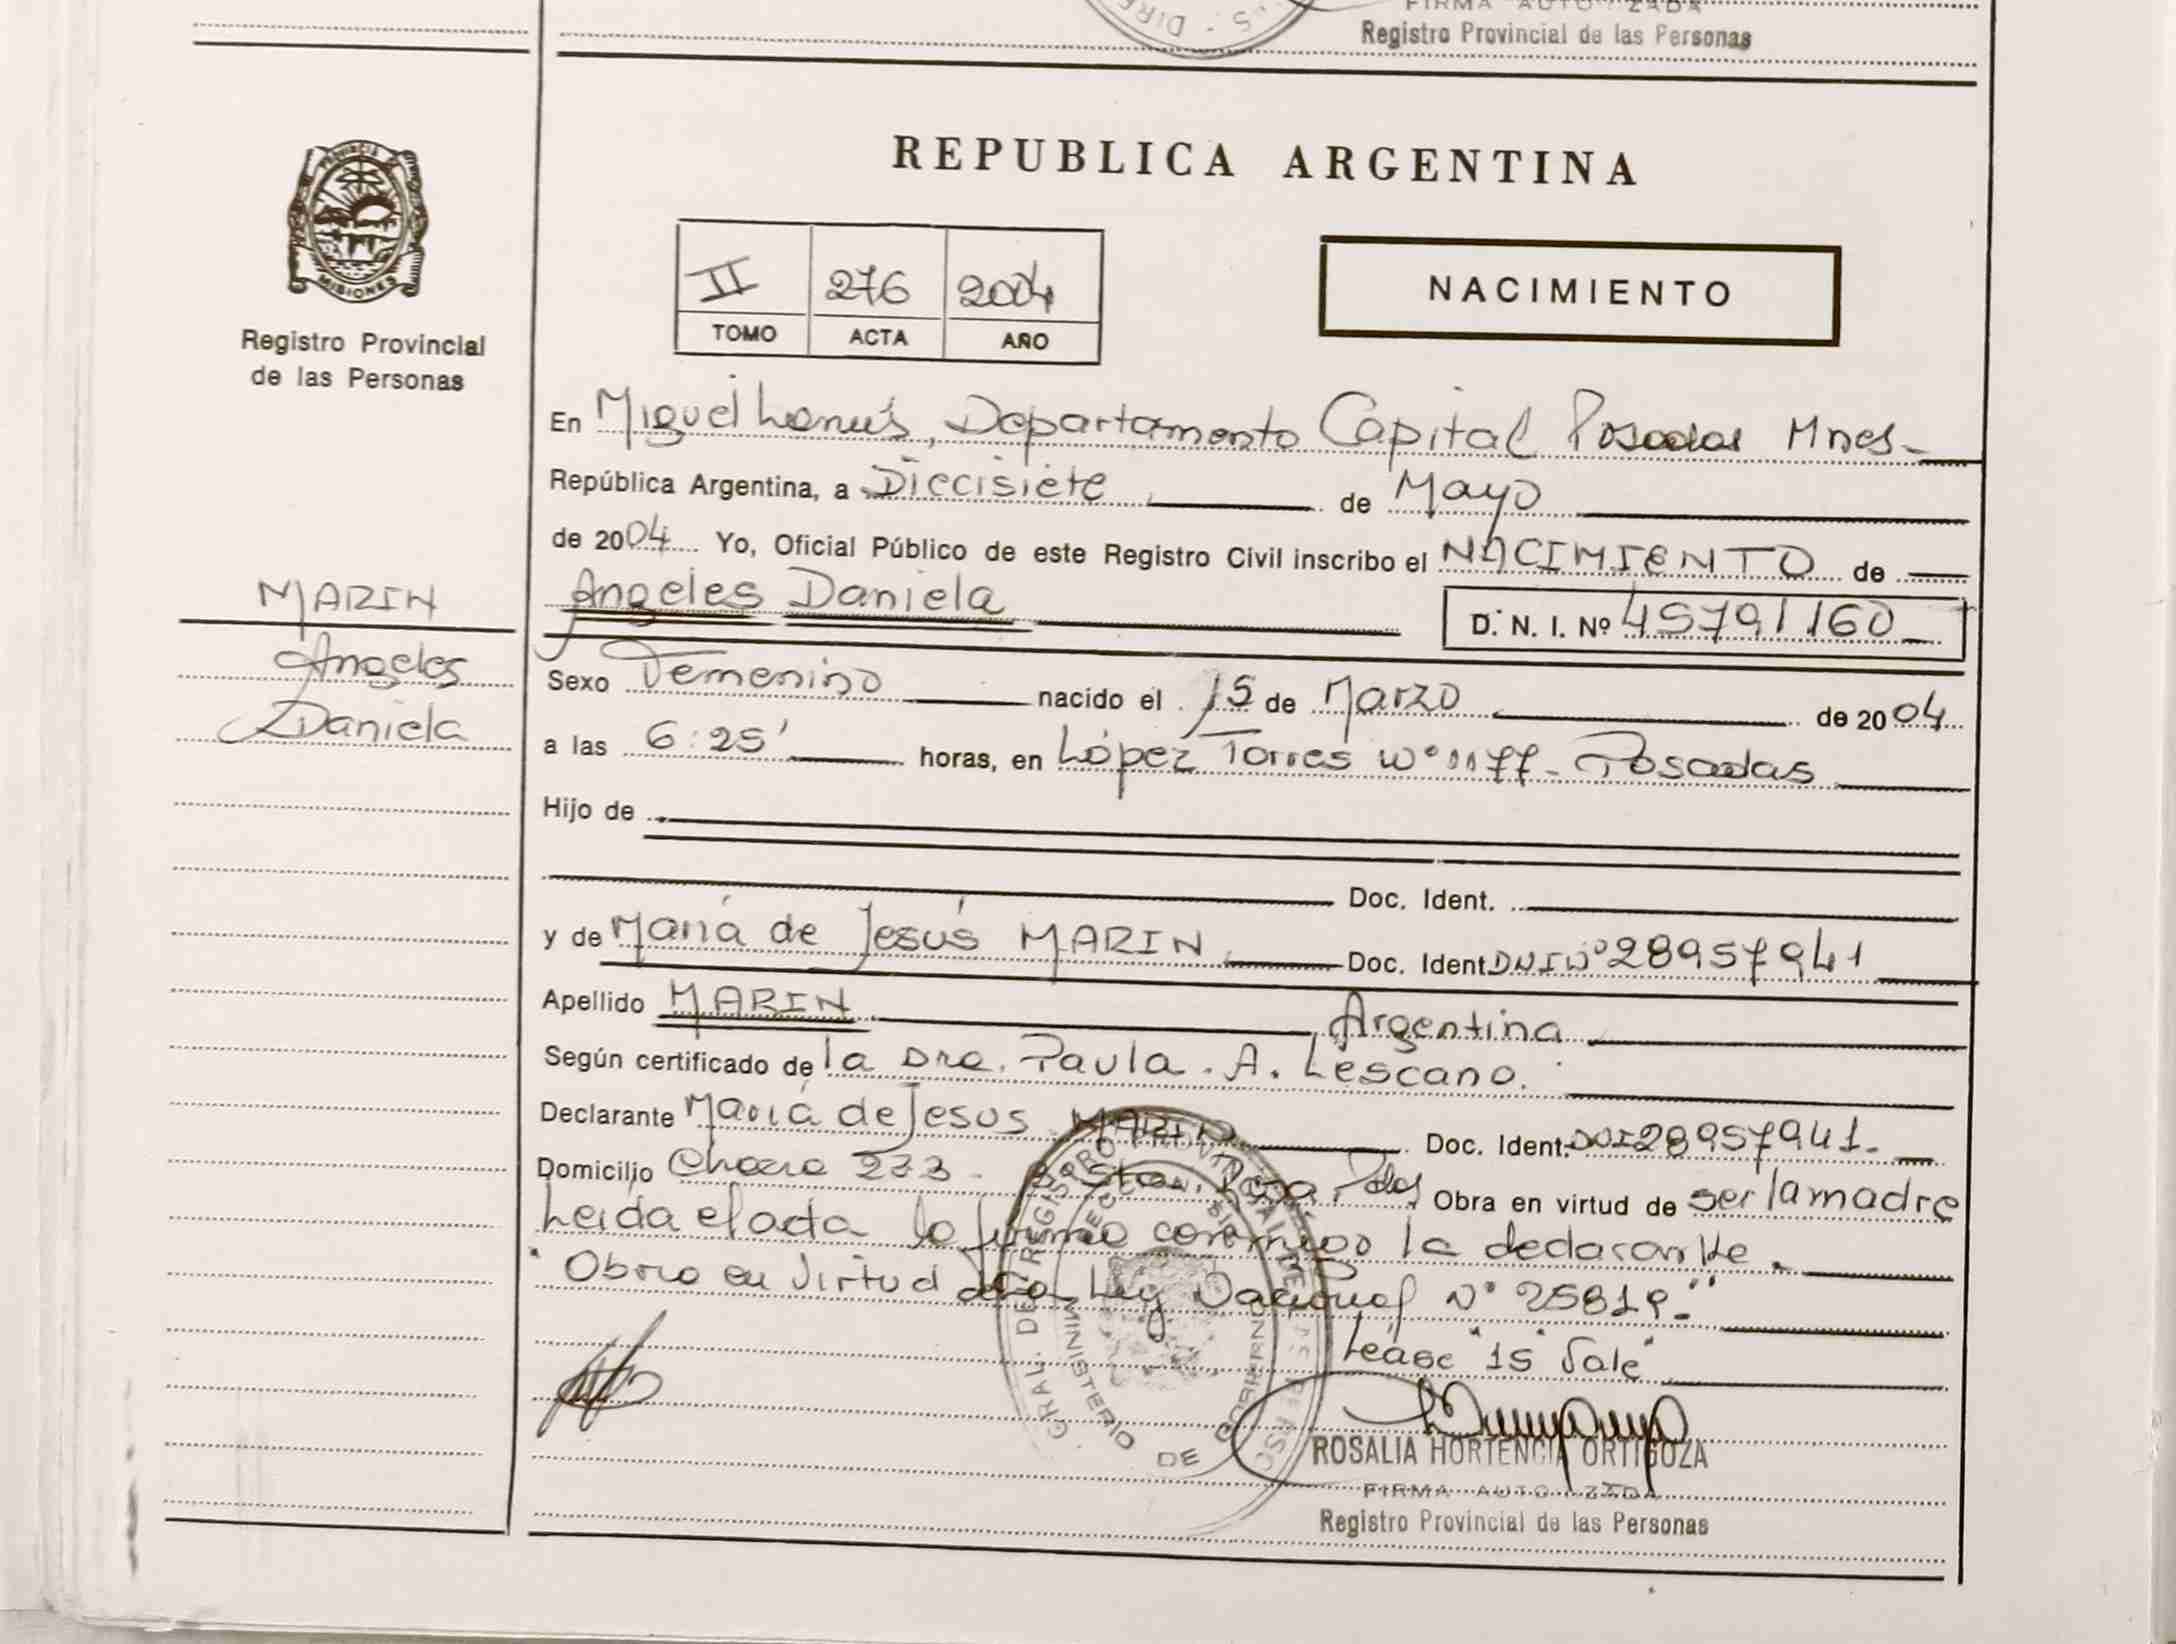 FIRMA AUTO ZADA
Registro Provincial de las Personas
PROVINCIA DE
MISIONES
Registro Provincial
de las Personas
REPUBLICA ARGENTINA
II 276 2004
TOMO ACTA AÑO
NACIMIENTO
En Miguel Lanús, Departamento Capital Posadas Mnes-
República Argentina, a Diecisiete de Mayo
de 2004 Yo, Oficial Público de este Registro Civil inscribo el NACIMIENTO de
Angeles Daniela D. N. I. Nº 45791160
MARIN
Angeles
Daniela
Sexo Femenino nacido el 15 de Marzo de 2004
a las 6:25' horas, en López Torres Nº 1177- Posadas
Hijo de
Doc. Ident.
y de María de Jesús MARIN Doc. Ident. DNI Nº 28957941
Apellido MARIN Argentina
Según certificado de la Dra. Paula. A. Lescano.
Declarante María de Jesus MARIN Doc. Ident. DNI 28957941.
Domicilio Chacra 233 - Bº Sta. Rosa. Pdas Obra en virtud de ser la madre
Leida el acta la firma conmigo la declarante.
"Obra en virtud de la Ley Nacional Nº 25819-"
Léase "15" Vale"
ROSALIA HORTENCIA ORTIGOZA
FIRMA AUTO ZADA
Registro Provincial de las Personas
GRAL. DE REGISTRO PROVINCIAL DE LAS PERSO
MINISTERIO DE GOBIERNO